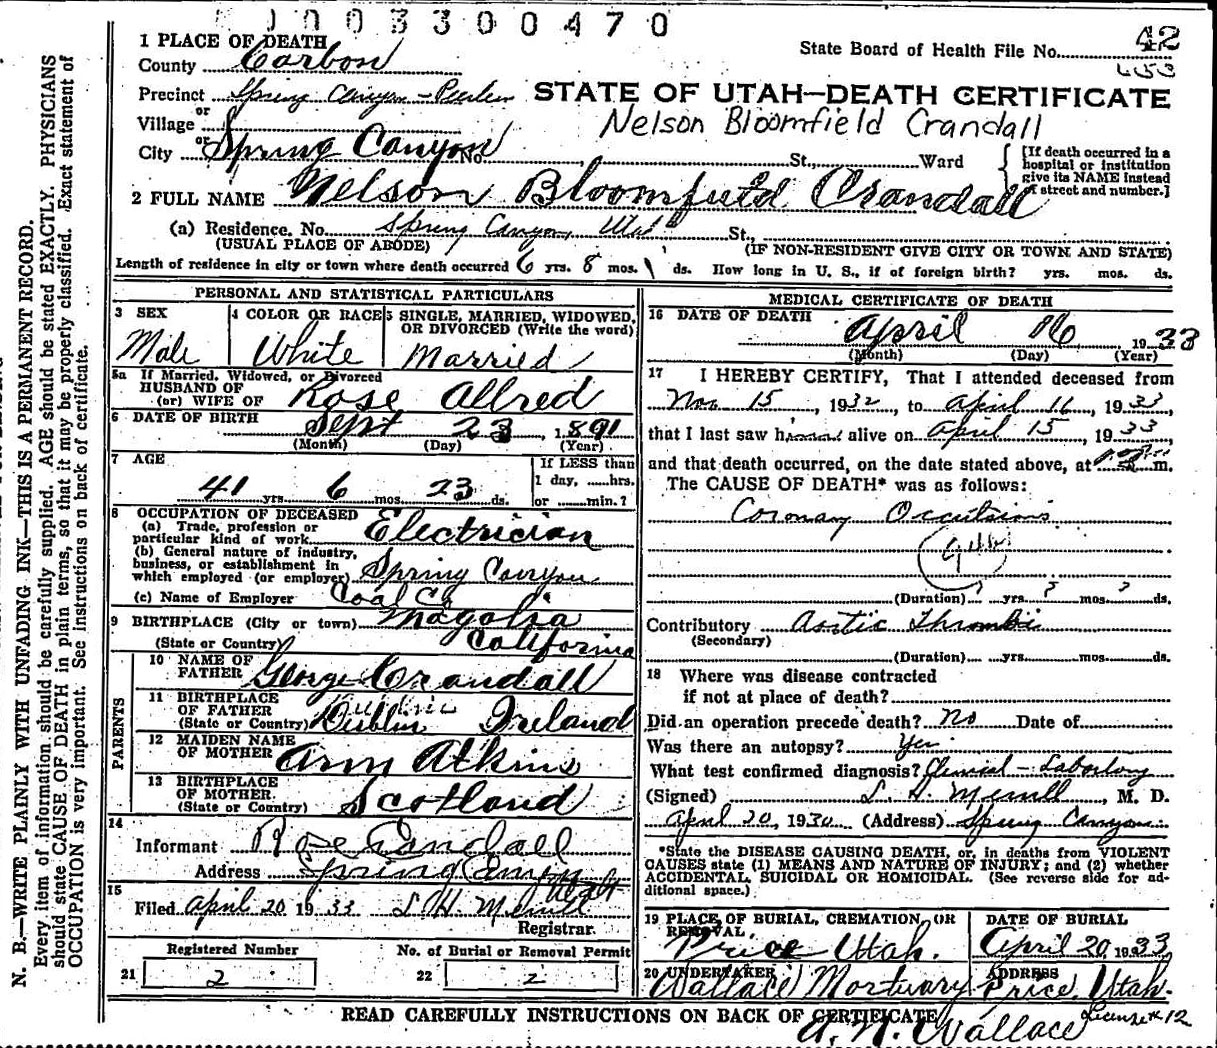 003300470
1 PLACE OF DEATH
County Carbon
State Board of Health File No. 42
Precinct Spring Canyon
STATE OF UTAH—DEATH CERTIFICATE
or
Village
Nelson Bloomfield Crandall
or
City Spring Canyon No. St., Ward
[If death occurred in a hospital or institution give its NAME instead of street and number.]
2 FULL NAME Nelson Bloomfield Crandall
(a) Residence. No. Spring Canyon, Utah St.,
(USUAL PLACE OF ABODE) (IF NON-RESIDENT GIVE CITY OR TOWN AND STATE)
Length of residence in city or town where death occurred 6 yrs. 8 mos. 1 ds. How long in U. S., if of foreign birth? yrs. mos. ds.
PERSONAL AND STATISTICAL PARTICULARS
3 SEX
Male
4 COLOR OR RACE
White
5 SINGLE, MARRIED, WIDOWED, OR DIVORCED (Write the word)
Married
5a If Married, Widowed, or Divorced
HUSBAND OF
(or) WIFE OF Rose Allred
6 DATE OF BIRTH Sept 23, 1891
(Month) (Day) (Year)
7 AGE
41 yrs. 6 mos. 23 ds.
If LESS than
1 day, ......hrs.
or ......min.?
8 OCCUPATION OF DECEASED
(a) Trade, profession or
particular kind of work Electrician
(b) General nature of industry,
business, or establishment in
which employed (or employer) Spring Canyon
(c) Name of Employer Coal Co
9 BIRTHPLACE (City or town) Magolia
(State or Country) California
PARENTS
10 NAME OF
FATHER George Crandall
11 BIRTHPLACE
OF FATHER
(State or Country) Dublin Ireland
12 MAIDEN NAME
OF MOTHER Ann Atkins
13 BIRTHPLACE
OF MOTHER
(State or Country) Scotland
14
Informant Rose Crandall
Address Spring Canyon Utah
15
Filed April 20 1933 L. H. Merrill
Registrar.
Registered Number No. of Burial or Removal Permit
21 2 22 2
MEDICAL CERTIFICATE OF DEATH
16 DATE OF DEATH
April 16, 1933
(Month) (Day) (Year)
17 I HEREBY CERTIFY, That I attended deceased from
Nov 15, 1932, to April 16, 1933,
that I last saw him alive on April 15, 1933,
and that death occurred, on the date stated above, at m.
The CAUSE OF DEATH* was as follows:
Coronary Occulsions
(Duration) yrs. mos. ds.
Contributory Aortic Thrombi
(Secondary)
(Duration) yrs. mos. ds.
18 Where was disease contracted
if not at place of death?
Did an operation precede death? No Date of
Was there an autopsy? Yes
What test confirmed diagnosis? Clinical - Labortory
(Signed) L. H. Merrill, M. D.
April 20, 1930 (Address) Spring Canyon
*State the DISEASE CAUSING DEATH, or, in deaths from VIOLENT
CAUSES state (1) MEANS AND NATURE OF INJURY; and (2) whether
ACCIDENTAL, SUICIDAL OR HOMICIDAL. (See reverse side for ad-
ditional space.)
19 PLACE OF BURIAL, CREMATION, OR
REMOVAL
Price Utah.
DATE OF BURIAL
April 20, 1933
20 UNDERTAKER
Wallace Mortuary
ADDRESS
Price, Utah.
READ CAREFULLY INSTRUCTIONS ON BACK OF CERTIFICATE
A. N. Wallace License # 12
N. B.—WRITE PLAINLY WITH UNFADING INK—THIS IS A PERMANENT RECORD.
Every item of information should be carefully supplied. AGE should be stated EXACTLY. PHYSICIANS
should state CAUSE OF DEATH in plain terms, so that it may be properly classified. Exact statement of
OCCUPATION is very important. See instructions on back of certificate.